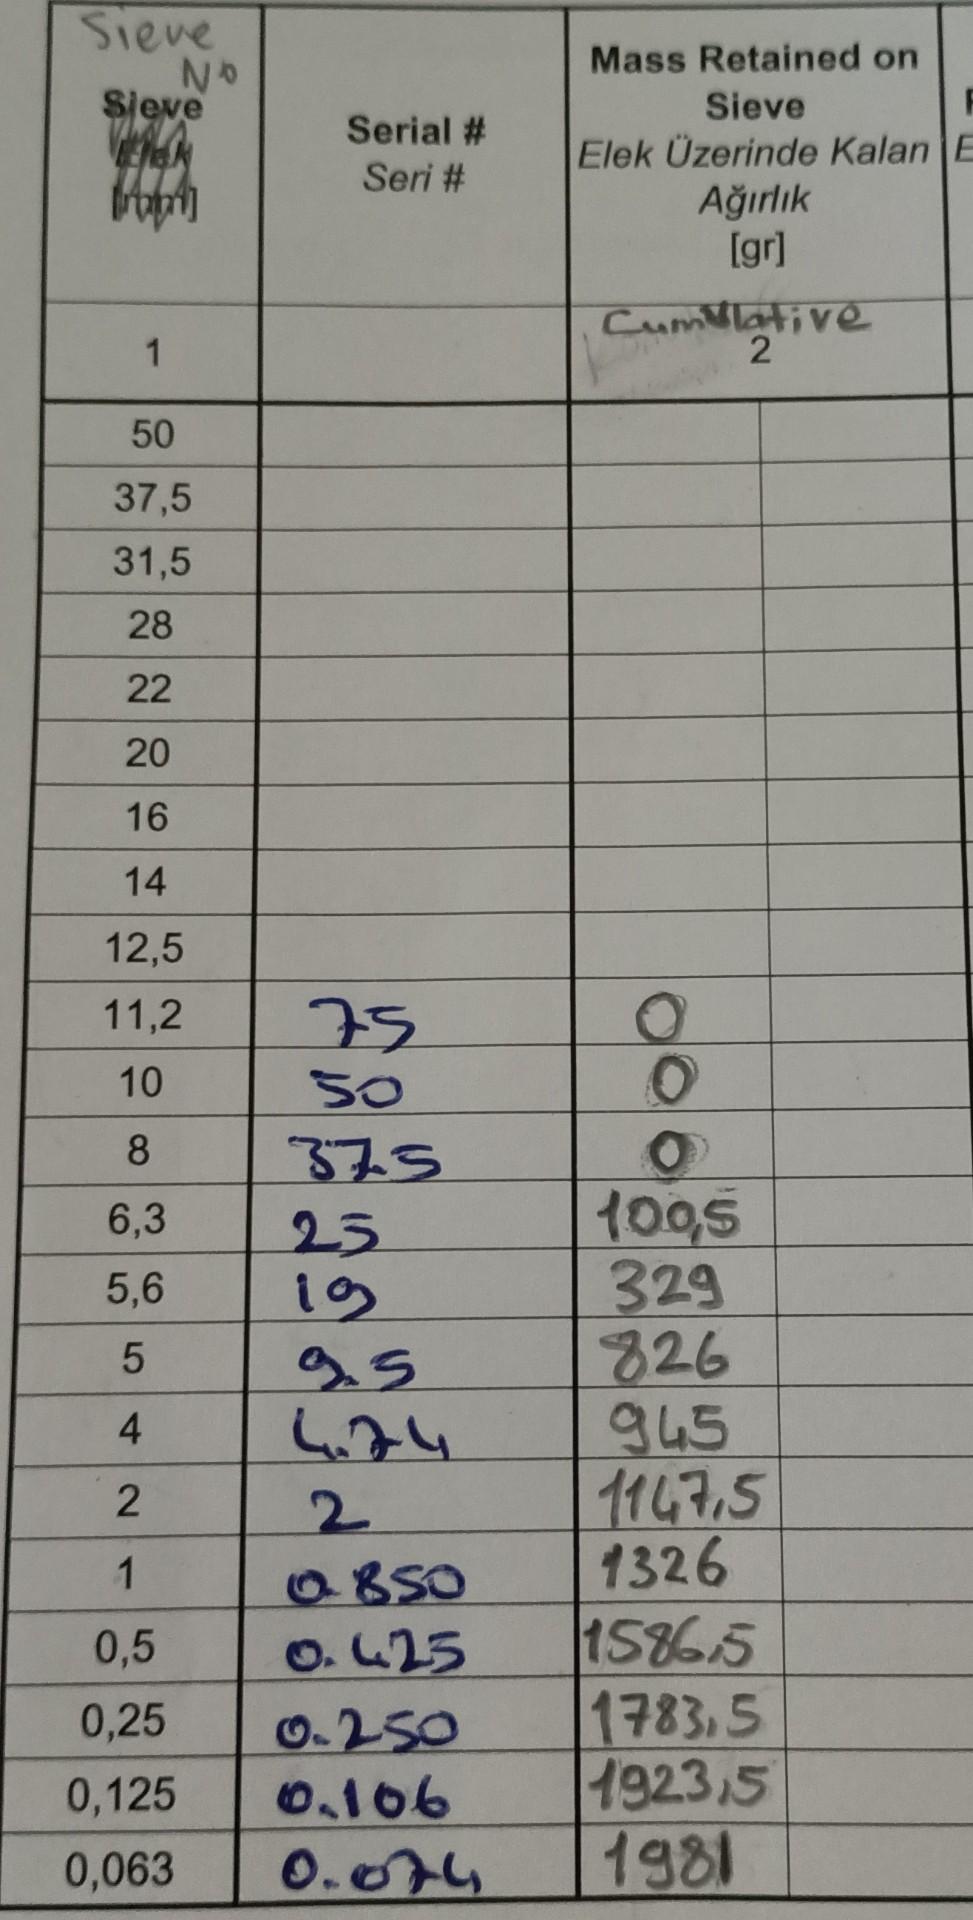 Sieve
No
Sieve
Elek
[mm]
Serial #
Seri #
Mass Retained on
Sieve
Elek Üzerinde Kalan
Ağırlık
[gr]
1
Cumulative
2
50
37,5
31,5
28
22
20
16
14
12,5
11,2 75 0
10 50 0
8 37.5 0
6,3 25 100,5
5,6 19 329
5 9.5 826
4 4.74 945
2 2 1147,5
1 0.850 1326
0,5 0.425 1586,5
0,25 0.250 1783,5
0,125 0.106 1923,5
0,063 0.074 1981